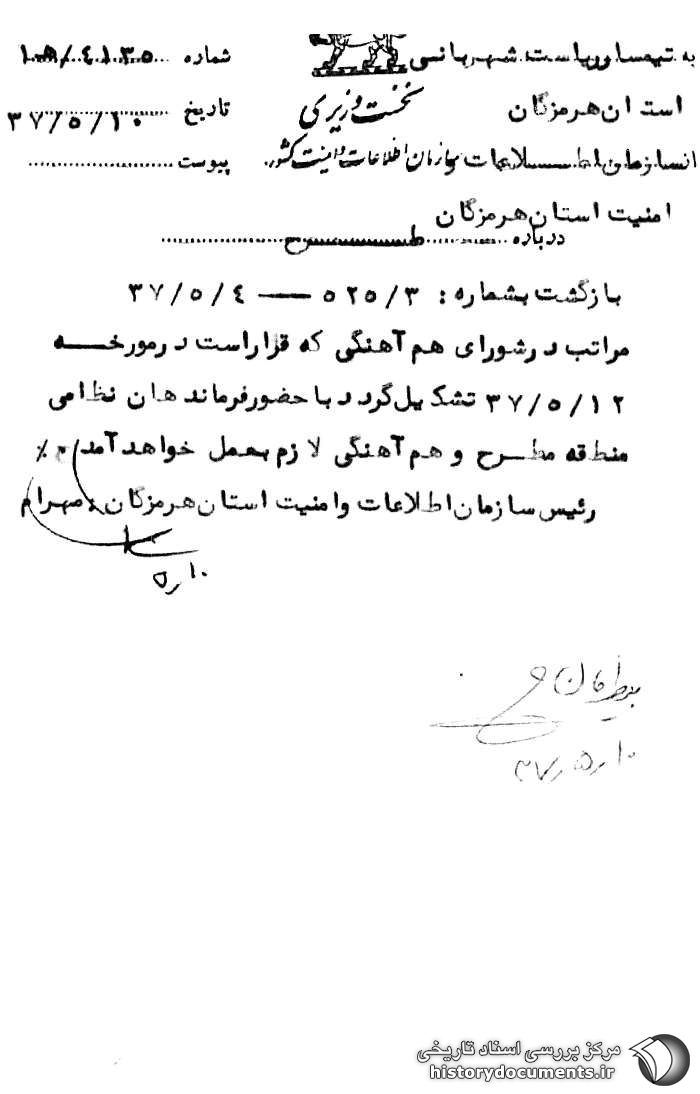 به تیمسار ریاست شهربانی
شماره ۱۰ﻫ/٤۱۳۵
استان هرمزگان
نخست وزیری
تاریخ ۳۷/۵/۱۰
از سازمان اطلاعات و
سازمان اطلاعات و امنیت کشور
پیوست
امنیت استان هرمزگان
درباره طرح
بازگشت بشماره : ۵۲۵/۳ — ۳۷/۵/٤
مراتب در شورای هم آهنگی که قرار است در مورخه
۳۷/۵/۱۲ تشکیل گردد با حضور فرماندهان نظامی
منطقه مطرح و هم آهنگی لازم بعمل خواهد آمد ٪
رئیس سازمان اطلاعات و امنیت استان هرمزگان . مهرام
۱۰ر۵
۱۰ر۵ر۳۷
مرکز بررسی اسناد تاریخی
historydocuments.ir